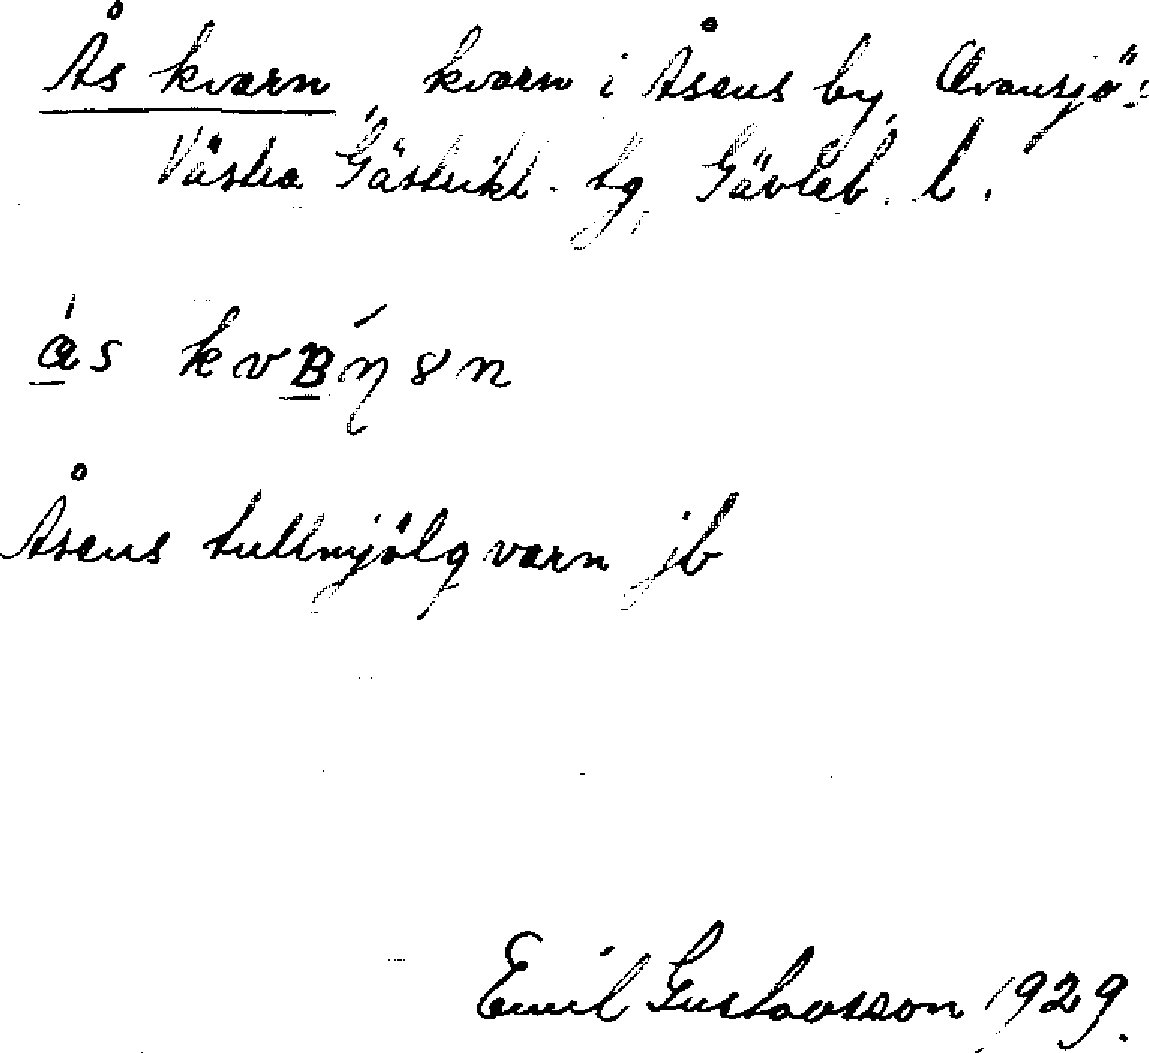 Ås kvarn, kvarn i Åsens by, Ovansjö:
Västra Gästrikl. tg, Gävleb. l.
Åsens tullmjölqvarn jb
Emil Gustavsson 1929.